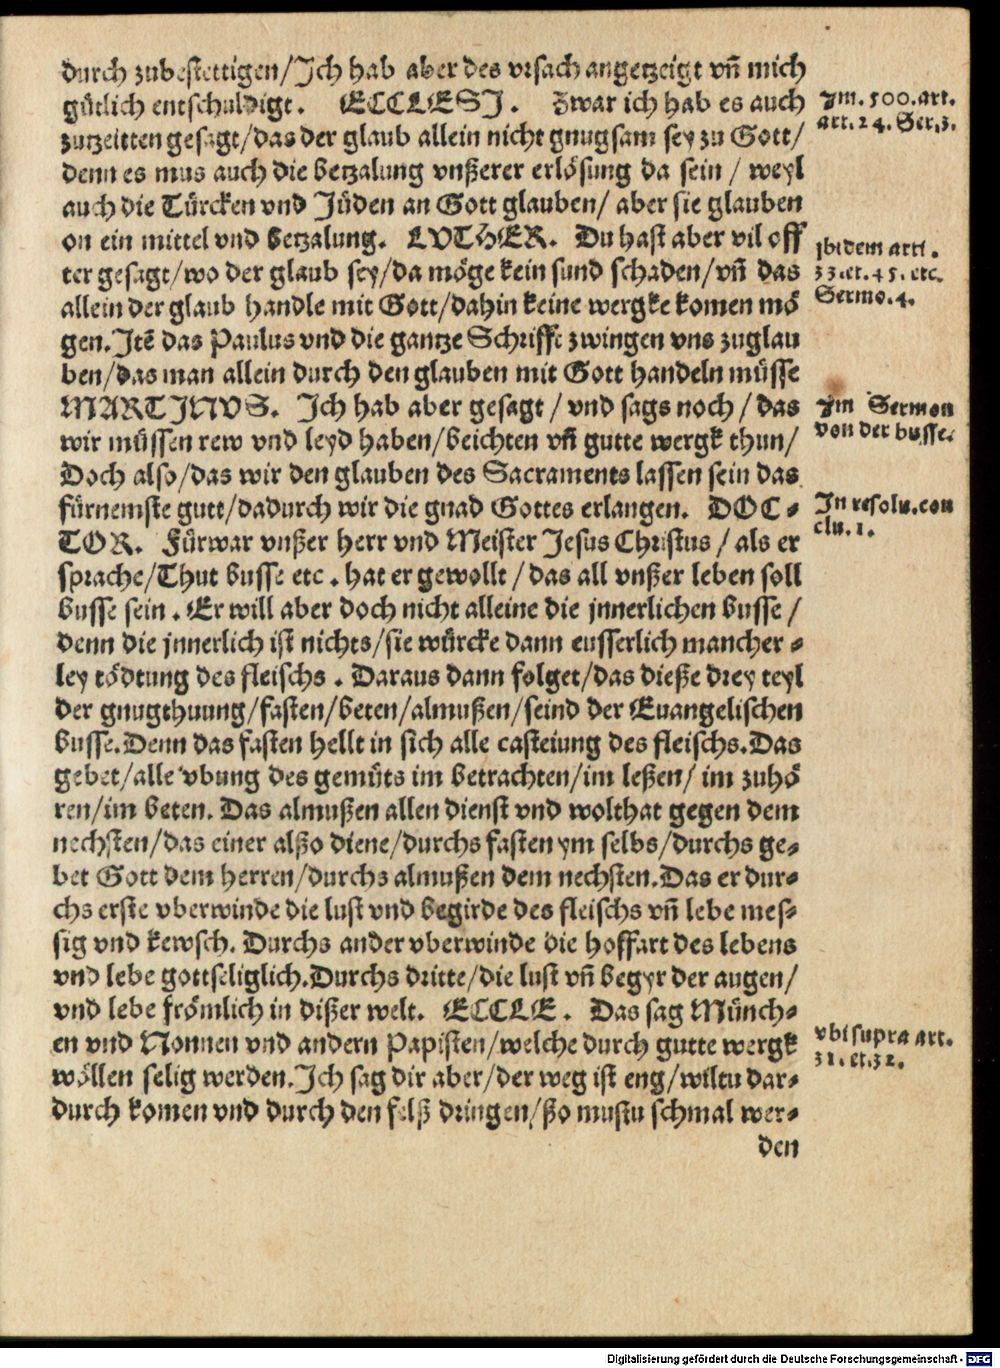 durch zubestettigen/Ich hab aber des vrsach angetzeigt vñ mich
gütlich entschuldigt. ECCLESI. Zwar ich hab es auch
zutzeitten gesagt/das der glaub allein nicht gnugsam sey zu Gott/
denn es mus auch die betzalung vnßerer erlösung da sein / weyl
auch die Türcken vnd Jüden an Gott glauben/ aber sie glauben
on ein mittel vnd betzalung. LVTHER. Du hast aber vil off
ter gesagt/wo der glaub sey/da möge kein sund schaden/vñ das
allein der glaub handle mit Gott/dahin keine wergke komen mö
gen. Itē das Paulus vnd die gantze Schrifft zwingen vns zuglau
ben/das man allein durch den glauben mit Gott handeln müsse
MARTINVS. Ich hab aber gesagt / vnd sags noch / das
wir müssen rew vnd leyd haben/beichten vñ gutte wergk thun/
Doch also/das wir den glauben des Sacraments lassen sein das
fürnemste gutt/dadurch wir die gnad Gottes erlangen. DOC-
TOR. Fürwar vnßer herr vnd Meister Jesus Christus / als er
sprache/Thut busse etc. hat er gewollt / das all vnßer leben soll
busse sein. Er will aber doch nicht alleine die jnnerlichen busse /
denn die jnnerlich ist nichts/sie würcke dann eusserlich mancher-
ley tödtung des fleischs. Daraus dann folget/das dieße drey teyl
der gnugthuung/fasten/beten/almußen/seind der Euangelischen
busse. Denn das fasten hellt in sich alle casteiung des fleischs. Das
gebet/alle vbung des gemüts im betrachten/im leßen/ im zuhö
ren/im beten. Das almußen allen dienst vnd wolthat gegen dem
nechsten/das einer alßo diene/durchs fasten ym selbs/durchs ge-
bet Gott dem herren/durchs almußen dem nechsten. Das er dur-
chs erste vberwinde die lust vnd begirde des fleischs vñ lebe mes-
sig vnd kewsch. Durchs ander vberwinde die hoffart des lebens
vnd lebe gottseliglich. Durchs dritte/die lust vñ begyr der augen/
vnd lebe frömlich in dißer welt. ECCLE. Das sag Münch-
en vnd Nonnen vnd andern Papisten/welche durch gutte wergk
wöllen selig werden. Ich sag dir aber/der weg ist eng/wiltu dar-
durch komen vnd durch den felß dringen/ßo mustu schmal wer-
den
Im. 500. art.
art. 24. Ser. 3.
Ibidem arti.
33. et. 45. etc.
Sermo. 4.
Im Sermon
von der busse.
In resolu. con
clu. 1.
vbi supra art.
31. et. 32.
Digitalisierung gefördert durch die Deutsche Forschungsgemeinschaft - DFG